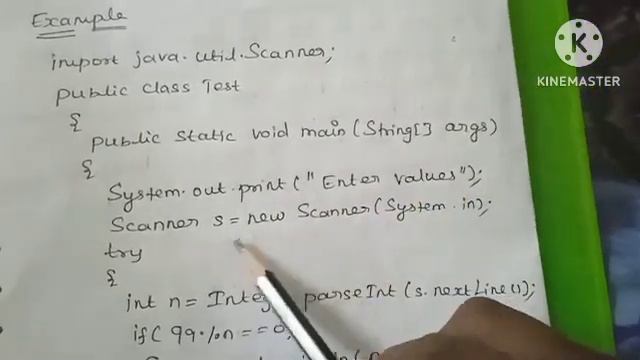 Example
import java.util.Scanner;
public class Test
{
public static void main(String[] args)
{
System.out.print("Enter values");
Scanner s = new Scanner(System.in);
try
{
int n = Integ parseInt(s.nextLine());
if(99%n==0
KINEMASTER